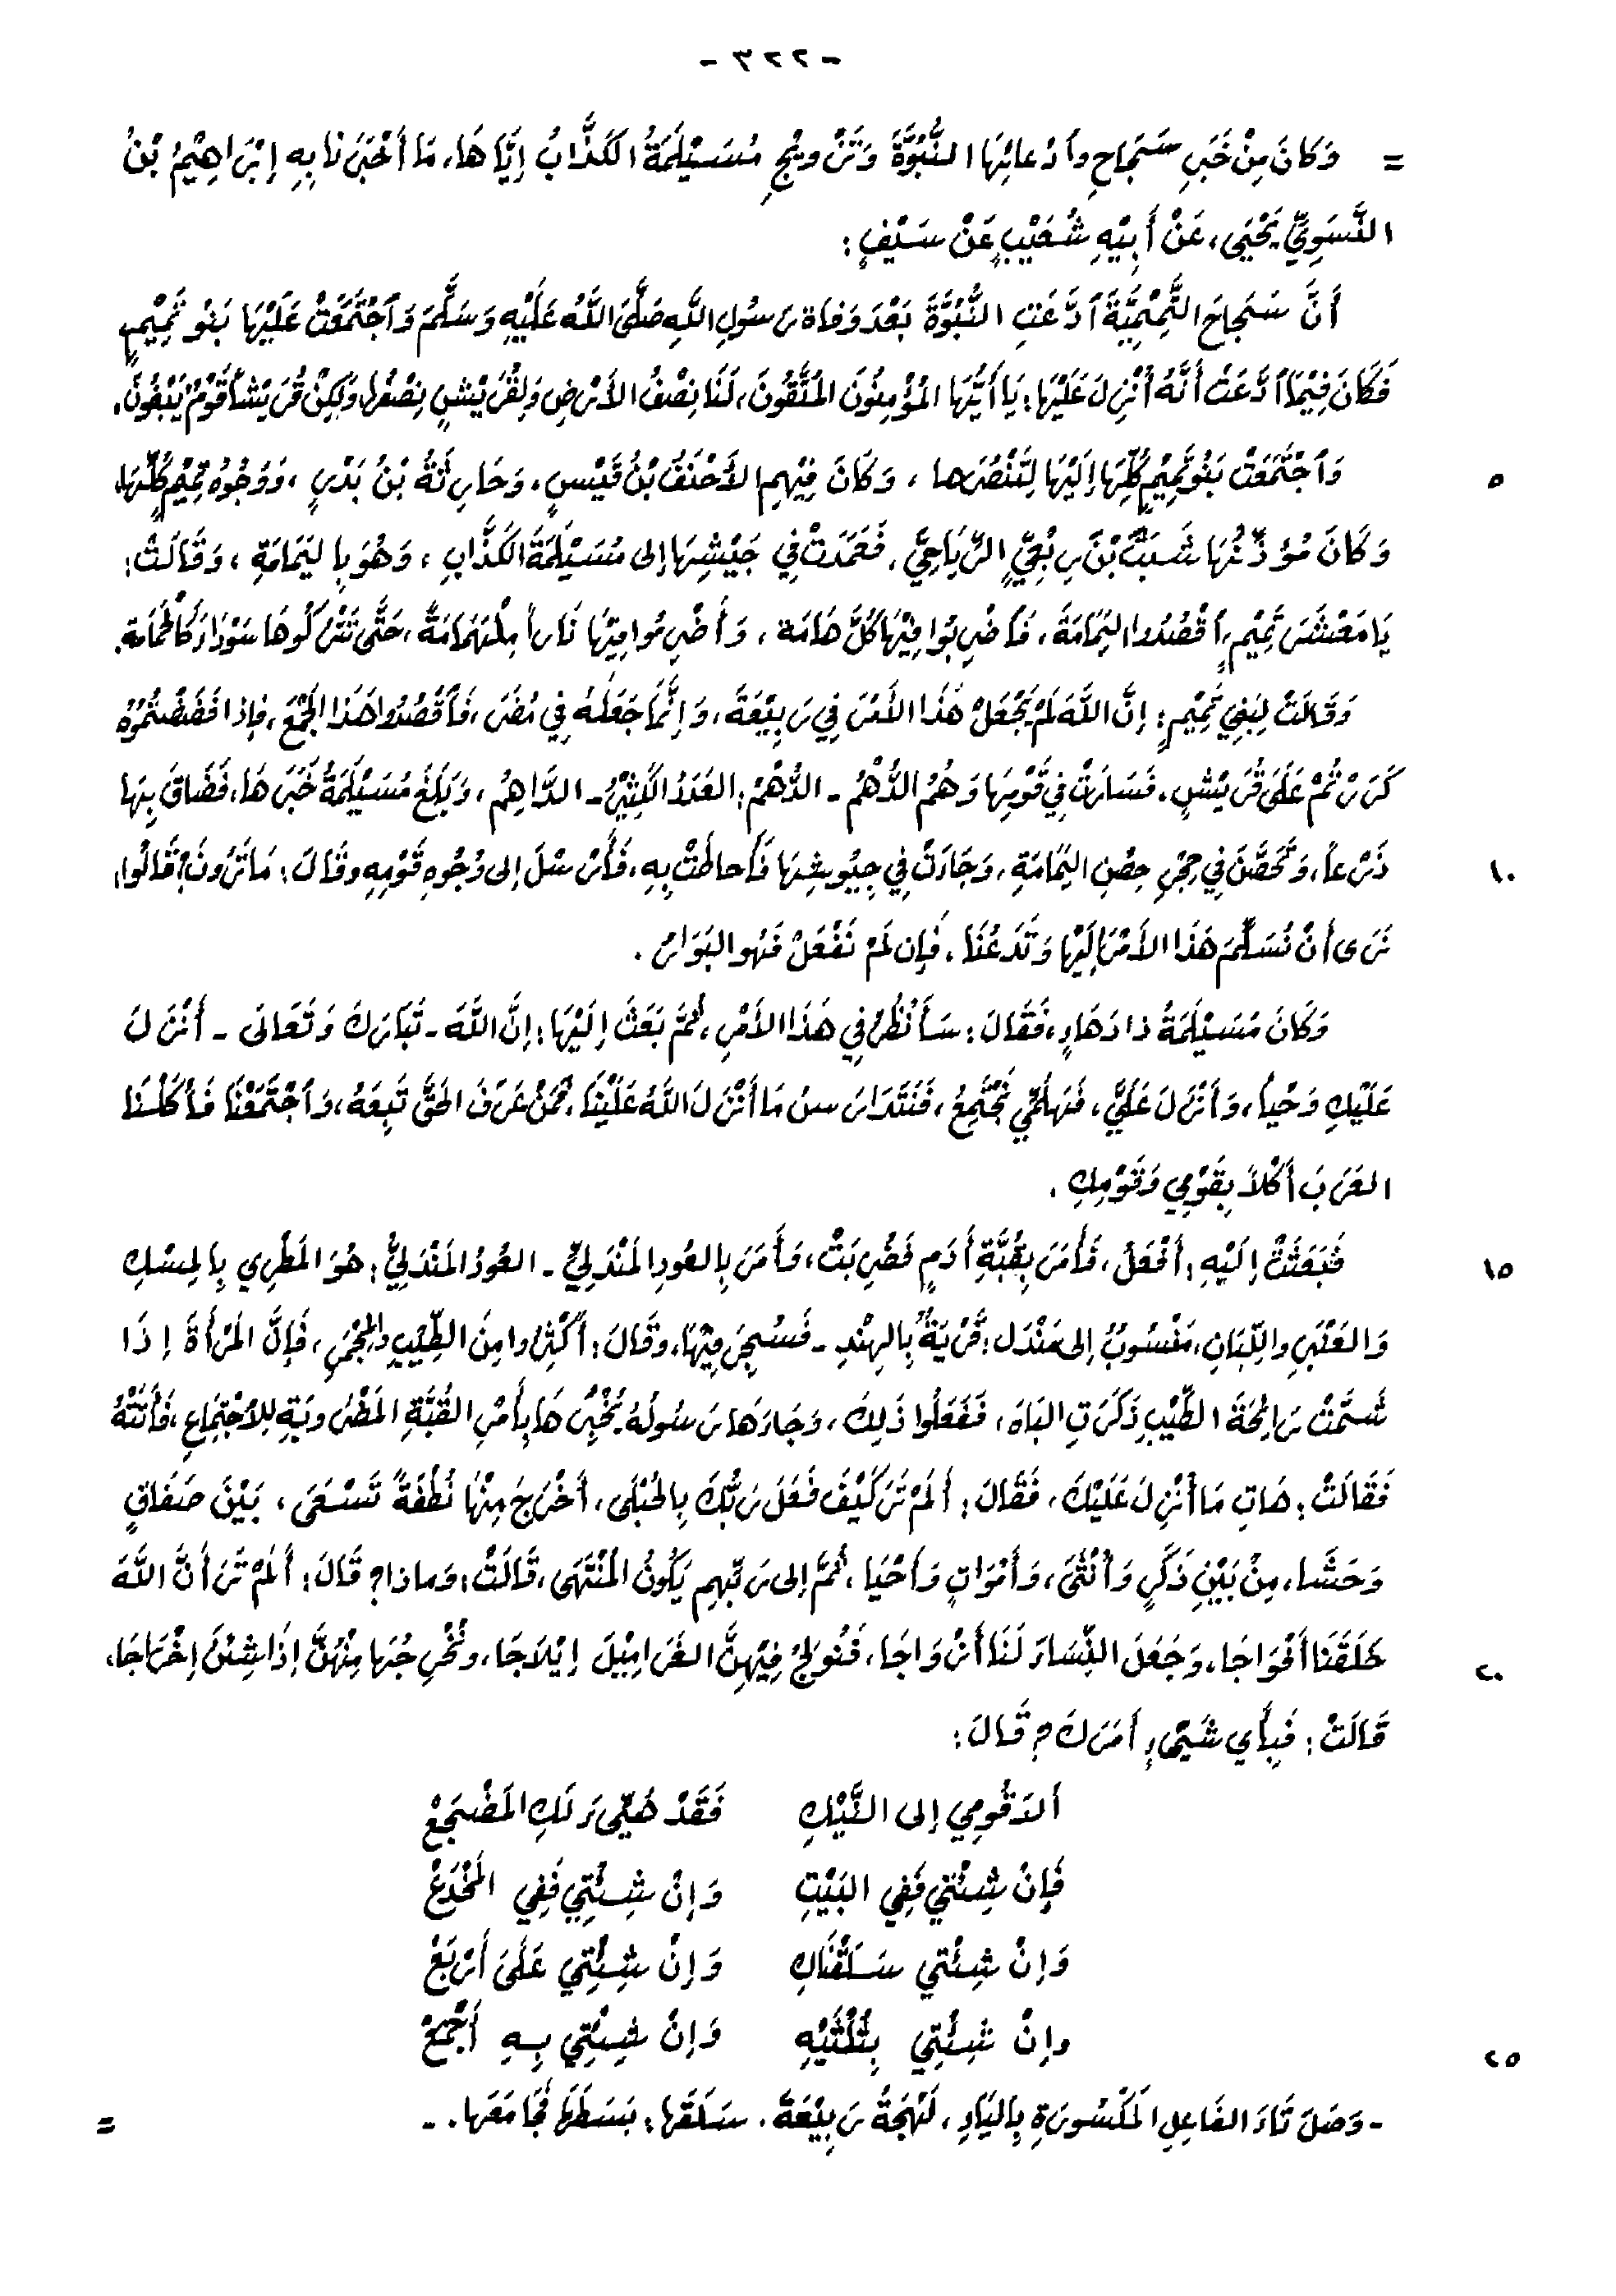 - ٢٢٣ -
= وَكَانَ مِنْ خَبَرِ سَجَاحِ وٱدْعائِهَا النُّبُوَّةَ وَتَزْوِيْجِ مُسَيْلَمَةُ الكَذَّابُ إِيَّاهَا، مَا أَخْبَرَنَا بِهِ إِبْرَاهِيْمُ بْنُ
النَّسَوِيِّ يَحْيَى، عَنْ أَبِيْهِ شُعَيْبٍ عَنْ سَيْفٍ:
أَنَّ سَجَاحَ التَّمِيْمِيَّةَ ٱدَّعَتِ النُّبُوَّةَ بَعْدَ وَفاة رَسُولِ اللَّهِ صَلَّى اللَّهُ عَلَيْهِ وَسَلَّمَ وَٱجْتَمَعَتْ عَلَيْهَا بَنُو تَمِيْمٍ
فَكَانَ فِيْمَا ٱدَّعَتْ أَنَّهُ أُنْزِلَ عَلَيْهَا: يَا أَيُّهَا المُؤْمِنُونَ المُتَّقُونَ، لَنَا نِصْفُ الأَرْضِ وَلِقُرَيْشٍ نِصْفُها، وَلَكِنَّ قُرَيْشاً قَوْمٌ يَبْغُونَ.
٥ وَٱجْتَمَعَتْ بَنُو تَمِيْمٍ كُلِّهَا إِلَيْهَا لِتَنْصُرَها، وَكَانَ فِيْهِم الأَحْنَفُ بْنُ قَيْسٍ، وَحَارِثَةُ بْنُ بَدْرٍ، وَوُجُوهُ تَمِيْمٍ كُلِّهَا،
وَكَانَ مُؤذِّنُهَا شَبَثَ بْنَ رِبْعِيٍّ الرِّيَاحِيَّ، فَعَمَدَتْ فِي جَيْشِهَا إلى مُسَيْلَمَةَ الكَذَّابِ، وَهُوَ بِاليَمَامَةِ، وَقَالَتْ:
يَا مَعْشَرَ تَمِيْمٍ، ٱقْصُدُوا اليَمَامَةَ، فَٱضْرِبُوا فِيْهَا كُلَّ هَامَة، وَأَضْرِمُوا فِيْهَا نَاراً مِلْهَامَةً، حَتَّى تَتْرُكُوها سَوْدَاءَ كَالحَمَامَةِ.
وَقَالَتْ لِبَنِي تَمِيْمٍ: إِنَّ اللَّهَ لَمْ يَجْعَلْ هَذَا الأَمْرَ فِي رَبِيْعَةَ، وَإِنَّمَا جَعَلَهُ فِي مُضَرَ، فَٱقْصُدُوا هَذَا الجَمْعَ، فَإِذا فَضَضْتُمُوهُ
كَرَرْتُمْ عَلَى قُرَيْشٍ. فَسَارَتْ فِي قَوْمِهَا وَهُمُ الدُّهْمُ - الدُّهْمُ: العَدَدُ الكَثِيْرُ - الدَّاهِمُ، وَبَلَغَ مُسَيْلَمَةُ خَبَرَهَا، فَضَاقَ بِهَا
١٠ ذَرْعاً، وَتَحَصَّنَ فِي حِجْرٍ حِصْنِ اليَمَامَةِ، وَجَاءَتْ فِي جِيُوشِهَا فَأَحاطَتْ بِهِ، فَأَرْسَلَ إلى وُجُوهِ قَوْمِهِ وقَالَ: مَا تَرَونَ؟ قَالُوا،
نَرَى أَنْ نُسَلِّمَ هَذَا الأَمْرَ إِلَيْهَا وَتَدَعُنَا، فَإِن لَمْ نَفْعَلْ فَهُو البَوَارُ.
وَكَانَ مُسَيْلَمَةُ ذا دَهَاءٍ، فَقَالَ: سَأَنْظُرُ فِي هَذَا الأَمْرِ، ثُمَّ بَعَثَ إِلَيْهَا: إِنَّ اللَّهَ - تَبَارَكَ وَتَعَالَى - أَنْزَلَ
عَلَيْكِ وَحْياً، وَأَنْزَلَ عَلَيَّ، فَهَلُمِّي نَجْتَمِعُ، فَنَتَدَارَسُ مَا أَنْزَلَ اللَّهُ عَلَيْنَا، فَمَنْ عَرَفَ الحَقَّ تَبِعَهُ، وَٱجْتَمَعْنَا فَأَكَلْنَا
العَرَبَ أَكْلاً بِقَوْمِي وَقَوْمِكِ.
١٥ فَبَعَثَتْ إِلَيْهِ: أَفْعَلُ، فَأَمَرَ بِقُبَّةِ أَدَمٍ فَضُرِبَتْ، وَأَمَرَ بِالعُودِ المَنْدَلِيِّ - العُودُ المَنْدَلِيُّ: هُوَ المَطْرِي بِالمِسْكِ
وَالعَنْبَرِ واللِّبَانِ، مَنْسُوبٌ إلى مَنْدَل: قَرْيَةٌ بِالهِنْدِ - فَسُجِرَ فِيْهَا، وقَالَ: أَكْثِرُوا مِنَ الطِّيْبِ والمِجْمَرِ، فَإِنَّ المَرْأَةَ إِذَا
شَمَّتْ رَائِحَةَ الطِّيْبِ ذَكَرَتِ البَاهَ، فَفَعَلُوا ذَلِكَ، وَجَاءَهَا رَسُولُهُ يُخْبِرُهَا بِأَمْرِ القُبَّةِ المَضْرُوبَةِ لِلاجْتِمَاعِ، فَأَتَتْهُ
فَقَالَتْ: هَاتِ مَا أُنْزِلَ عَلَيْكَ، فَقَالَ: أَلَمْ تَرَ كَيْفَ فَعَلَ رَبُّكَ بِالحُبْلَى، أَخْرَجَ مِنْهَا نُطْفَةً تَسْعَى، بَيْنَ صَفَاقٍ
وَحَشَا، مِنْ بَيْنِ ذَكَرٍ وَأُنْثَى، وَأَمْوَاتٍ وَأَحْيَا، ثُمَّ إلى رَبِّهِم يَكُونُ المُنْتَهَى، قَالَتْ: وَماذا؟ قَالَ: أَلَمْ تَرَ أَنَّ اللَّهَ
٢٠ خَلَقَنَا أَفْوَاجَا، وَجَعَلَ النِّسَاءَ لَنَا أَزْوَاجَا، فَنُولِجُ فِيْهِنَّ الغَرَامِيْلَ إِيْلَاجَا، ونُخْرِجُهَا مِنْهُنَّ إِذَا شِئْنَ إِخْرَاجَا،
قَالَتْ: فَبِأَي شَيْءٍ أَمَرَكَ؟ قَالَ:
أَلاَ قُومِي إلى النَّيْكِ فَقَدْ هُيِّىءَ لَكِ المَضْجَعْ
فَإِنْ شِئْتي فَفِي البَيْتِ وَإِنْ شِئْتِي فَفِي المَخْدَعْ
وَإِنْ شِئْتي سَلَقْنَاكِ وَإِنْ شِئْتِي عَلَى أَرْبَعْ
٢٥ وإنْ شِئْتِي بِثُلْثَيْهِ وَإِنْ شِئْتِي بِهِ أَجْمَعْ
- وَصَلَ تَاءَ الفَاعِلِ المَكْسُورَةِ بِاليَاءِ، لَهْجَةُ رَبِيْعَةَ. سَلَقَها: بَسَطَهَا فَجَامَعَها. - =